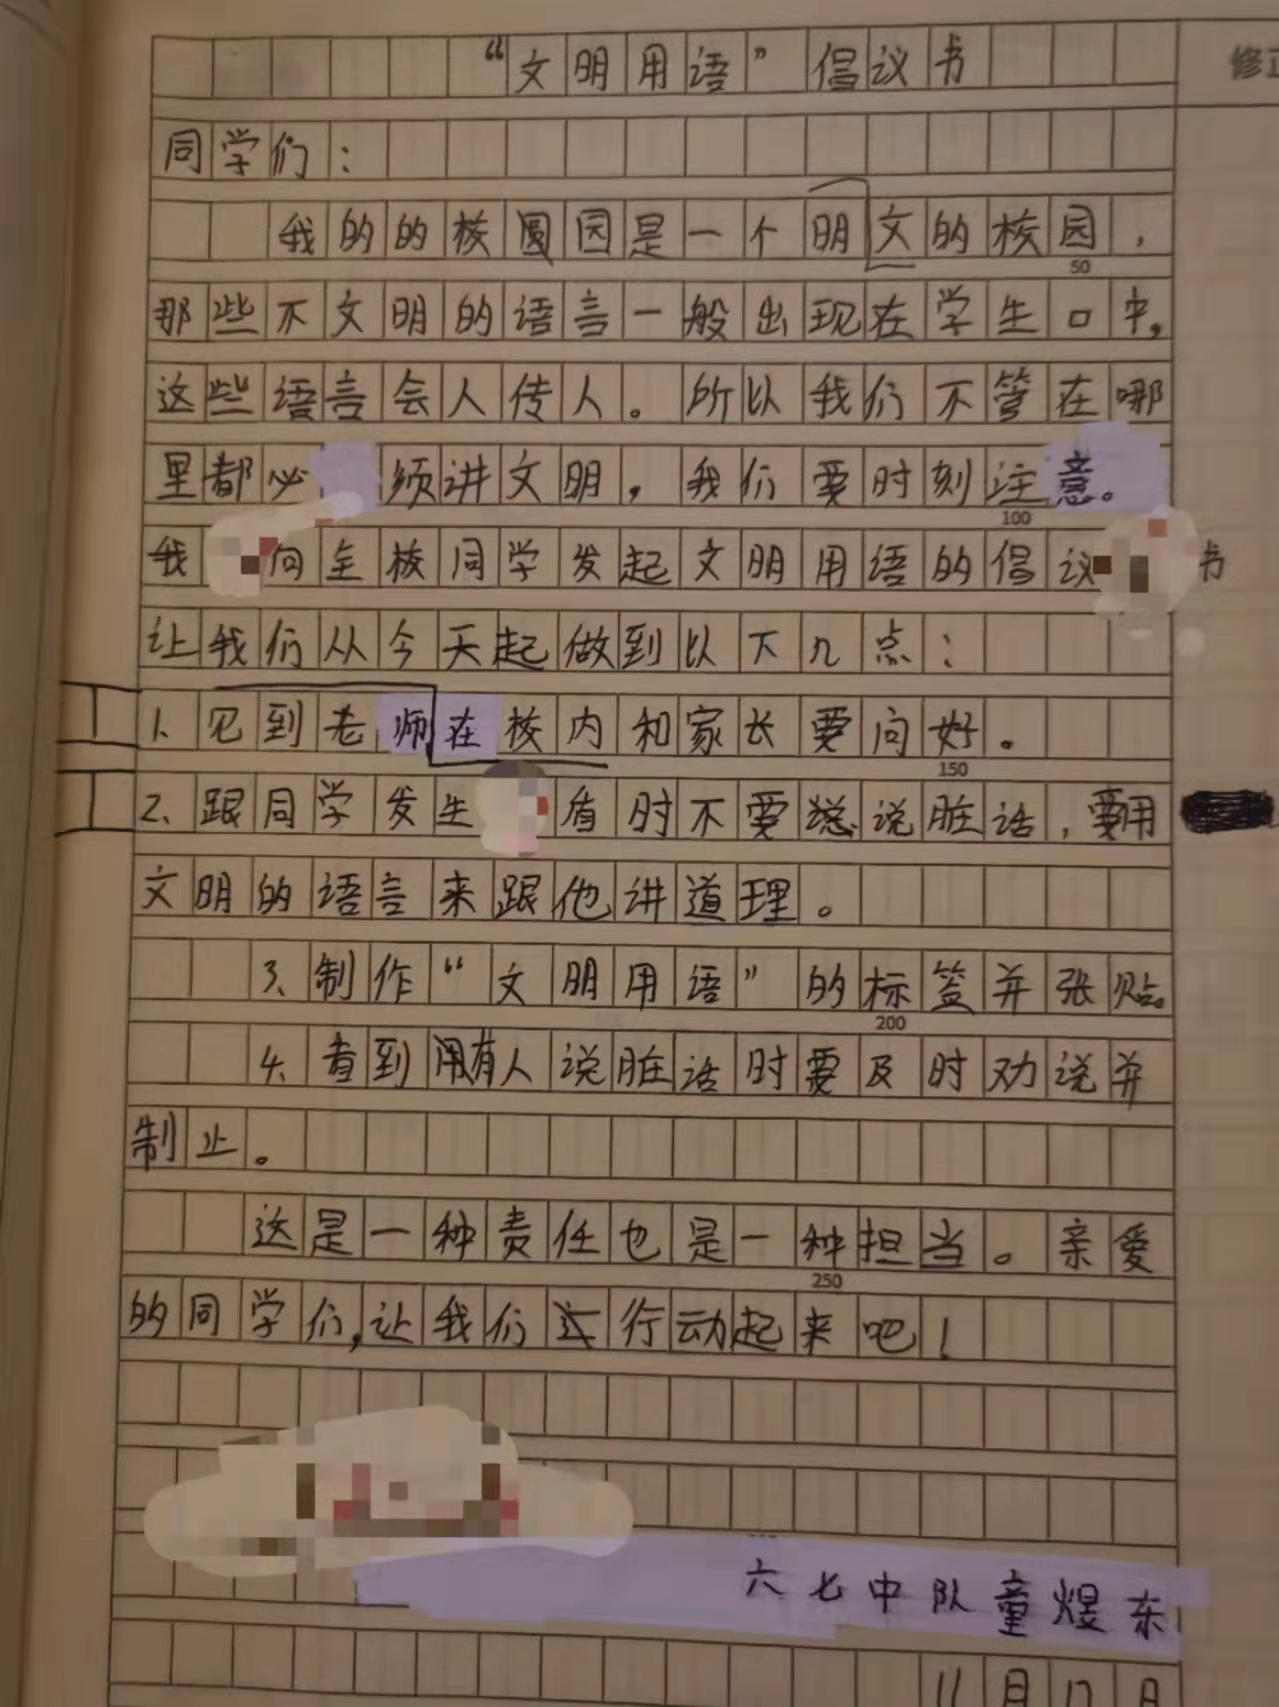 “文明用语”倡议书
修正
同学们：
我的的校园园是一个明文的校园，
50
那些不文明的语言一般出现在学生口中，
这些语言会人传人。所以我们不管在哪
里都必须讲文明，我们要时刻注意。
100
我向全校同学发起文明用语的倡议书
让我们从今天起做到以下几点：
1、见到老师在校内和家长要问好。
150
2、跟同学发生盾时不要说脏话，要用
文明的语言来跟他讲道理。
3、制作“文明用语”的标签并张贴。
200
4、看到有人说脏话时要及时劝说并
制止。
这是一种责任也是一种担当。亲爱
250
的同学们，让我们行动起来吧！
六七中队童煜东
11月17日